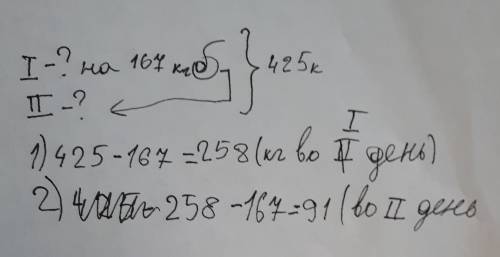 I - ? на 167 кг б. } 425к
II - ?
I
1) 425 - 167 = 258 (кг во II день)
2) 258 - 167 = 91 (во II день